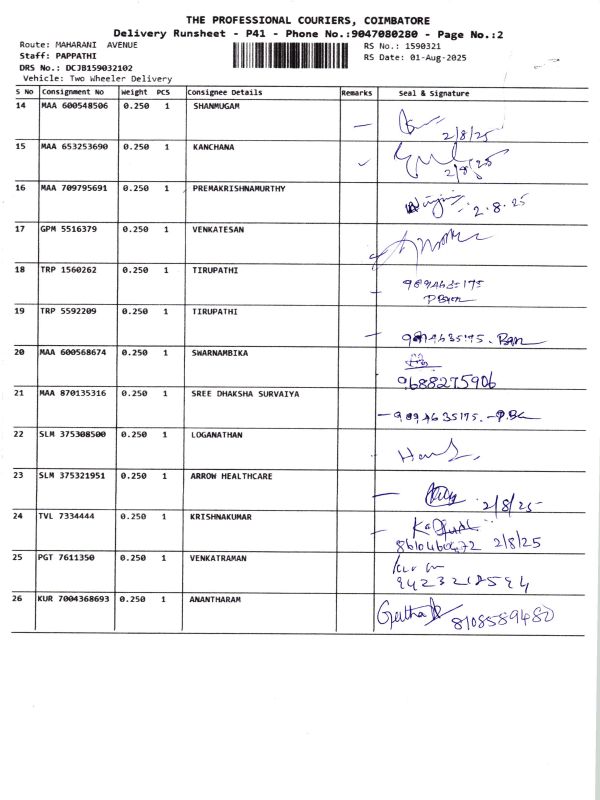 THE PROFESSIONAL COURIERS, COIMBATORE
Delivery Runsheet - P41 - Phone No.:9047080280 - Page No.:2
Route: MAHARANI AVENUE
RS No.: 1590321
Staff: PAPPATHI
RS Date: 01-Aug-2025
DRS No.: DCJB159032102
Vehicle: Two Wheeler Delivery
S No Consignment No Weight PCS Consignee Details Remarks Seal & Signature
14 MAA 600548506 0.250 1 SHANMUGAM
2/8/25
15 MAA 653253690 0.250 1 KANCHANA
2/8/25
16 MAA 709795691 0.250 1 PREMAKRISHNAMURTHY
2.8.25
17 GPM 5516379 0.250 1 VENKATESAN
18 TRP 1560262 0.250 1 TIRUPATHI
9894635175
19 TRP 5592209 0.250 1 TIRUPATHI
9894635175.
20 MAA 600568674 0.250 1 SWARNAMBIKA
9688275906
21 MAA 870135316 0.250 1 SREE DHAKSHA SURVAIYA
9894635175.
22 SLM 375308500 0.250 1 LOGANATHAN
23 SLM 375321951 0.250 1 ARROW HEALTHCARE
2/8/25
24 TVL 7334444 0.250 1 KRISHNAKUMAR
8610460472 2/8/25
25 PGT 7611350 0.250 1 VENKATRAMAN
26 KUR 7004368693 0.250 1 ANANTHARAM
Geetha 8108589480